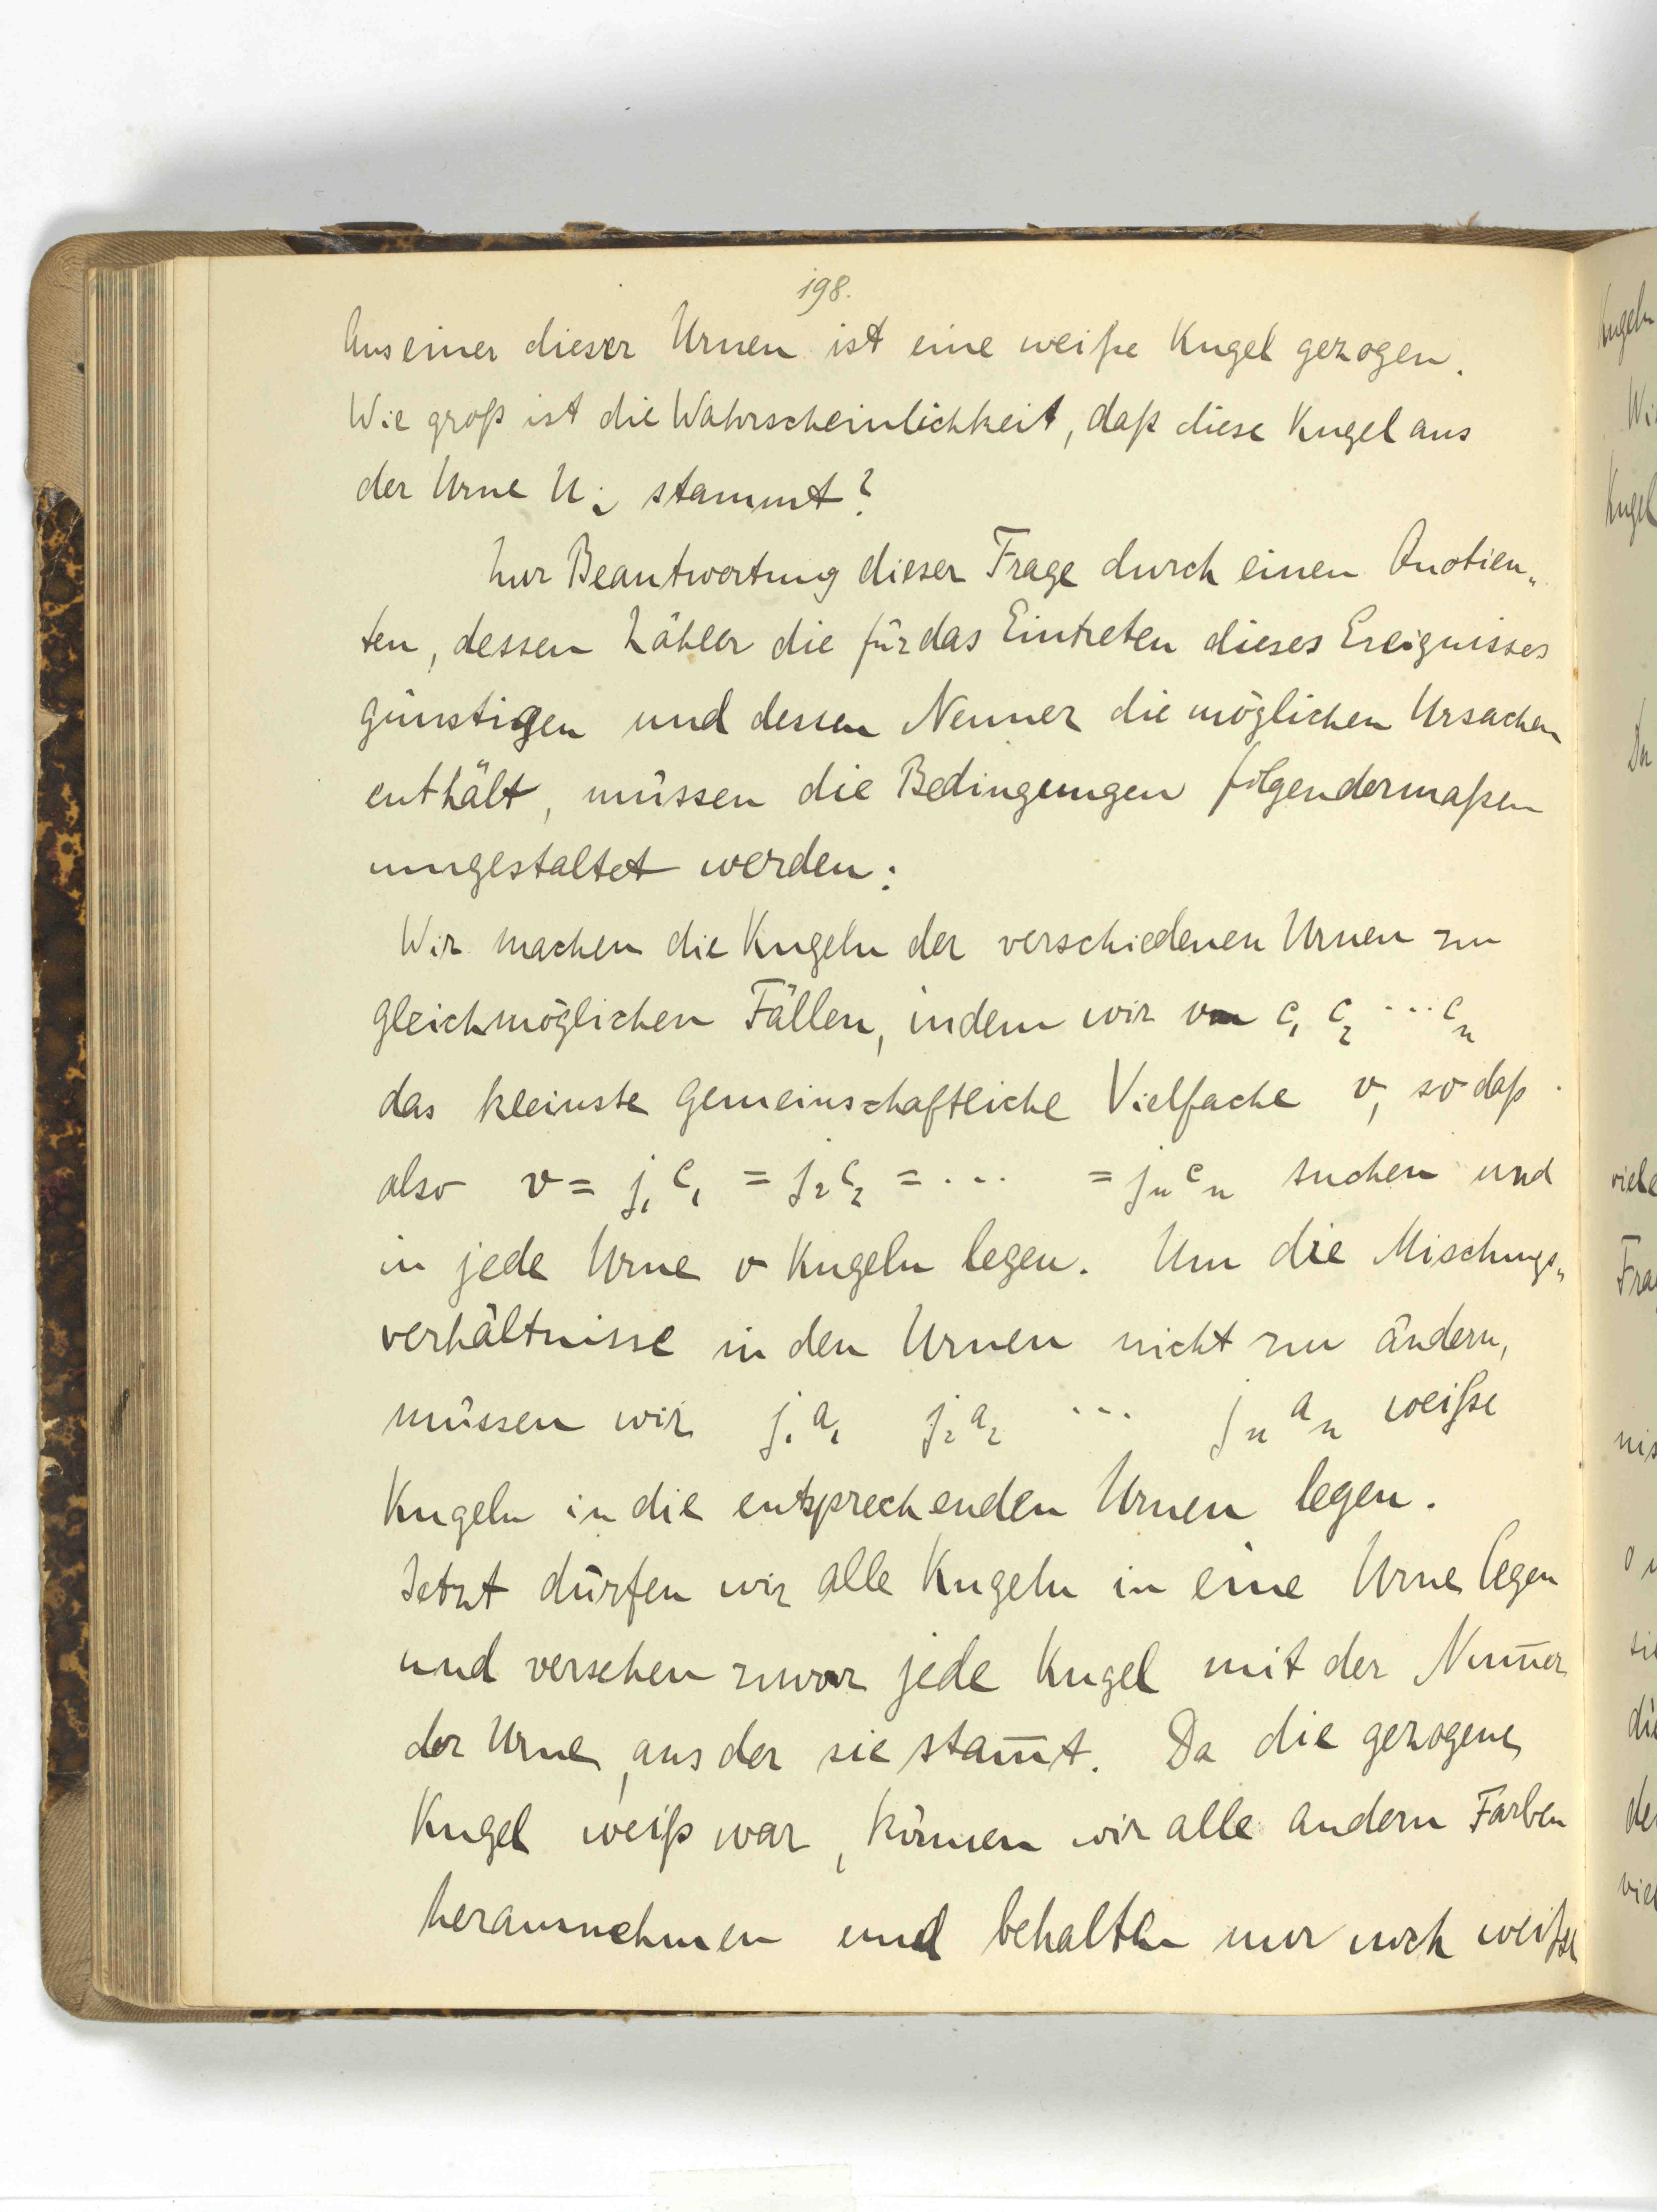 198.
Aus einer dieser Urnen ist eine weiße Kugel gezogen.
Wie groß ist die Wahrscheinlichkeit, daß diese Kugel aus
der Urne U_i stammt?
Zur Beantwortung dieser Frage durch einen Quotien„
ten, dessen Zähler die für das Eintreten dieses Ereignisses
günstigen und dessen Nenner die möglichen Ursachen
enthält, müssen die Bedingungen folgendermaßen
umgestaltet werden:
Wir machen die Kugeln der verschiedenen Urnen zu
gleichmöglichen Fällen, indem wir von c₁ c₂ ... cₙ
das kleinste gemeinschaftliche Vielfache v, so daß
also v = j₁c₁ = j₂c₂ = ... = jₙcₙ suchen und
in jede Urne v Kugeln legen. Um die Mischungs„
verhältnisse in den Urnen nicht zu ändern,
müssen wir j₁a₁ j₂a₂ ... jₙaₙ weiße
Kugeln in die entsprechenden Urnen legen.
Jetzt dürfen wir alle Kugeln in eine Urne legen
und versehen zuvor jede Kugel mit der Num̅er
der Urne, aus der sie stam̅t. Da die gezogene
Kugel weiß war, können wir alle andern Farben
herausnehmen und behalten nur noch weiße
Kugeln
Wi
Kugel
Da
viele
Fra
nis
sie
die
der
viel